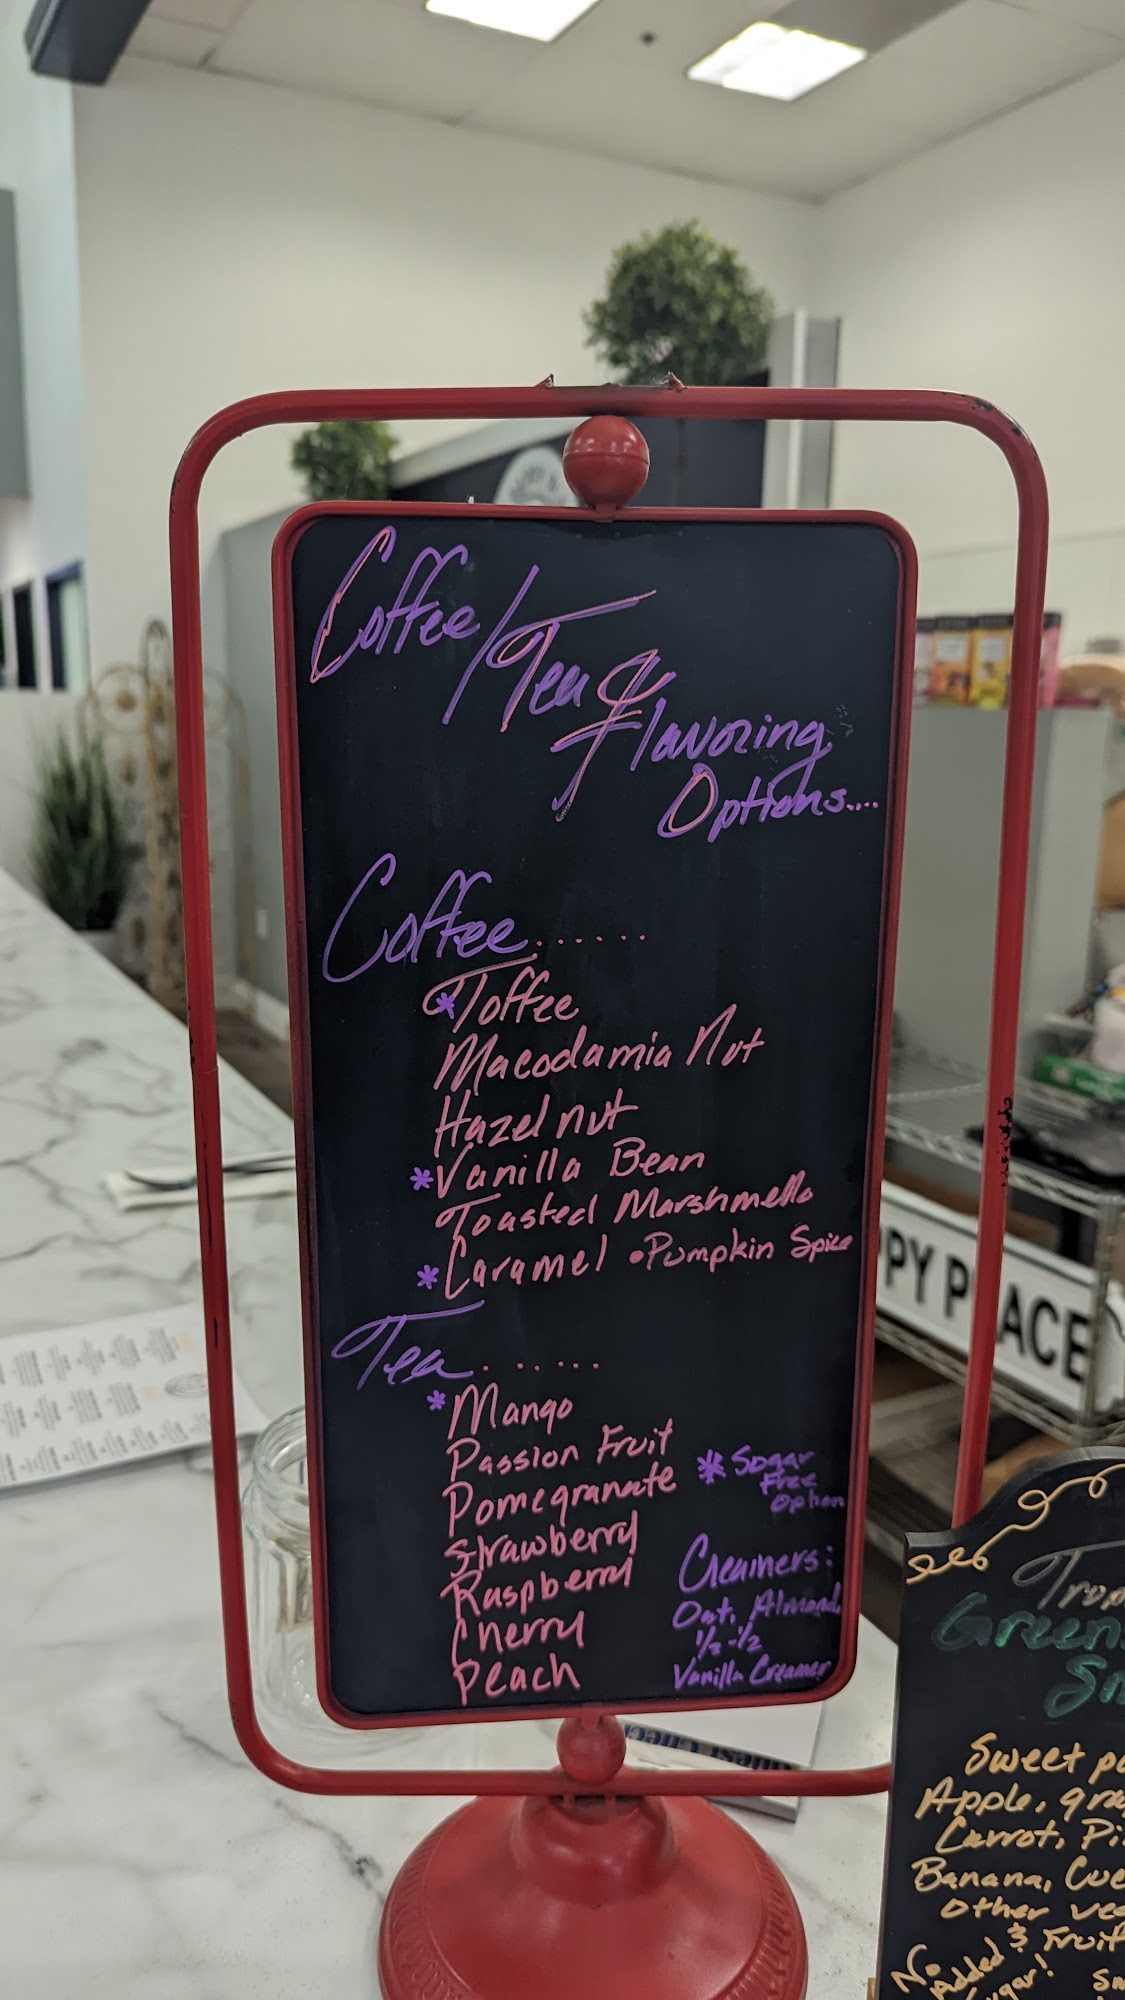 Coffee/Tea
Flavoring
Options....
Coffee......
*Toffee
Macodamia Nut
Hazelnut
*Vanilla Bean
Toasted Marshmello
*Caramel •Pumpkin Spice
Tea......
*Mango
Passion Fruit
Pomegranate
Strawberry
Raspberry
Cherry
Peach
* Sugar
Free
Option
Creamers:
Oat, Almond,
1/2-1/2
Vanilla Creamer
PPY PLACE
Trop
Green
Sm
Sweet po
Apple, gra
Carrot, Pi
Banana, Cu
Other ve
& Fruit
No
Added
Sugar!
Sm